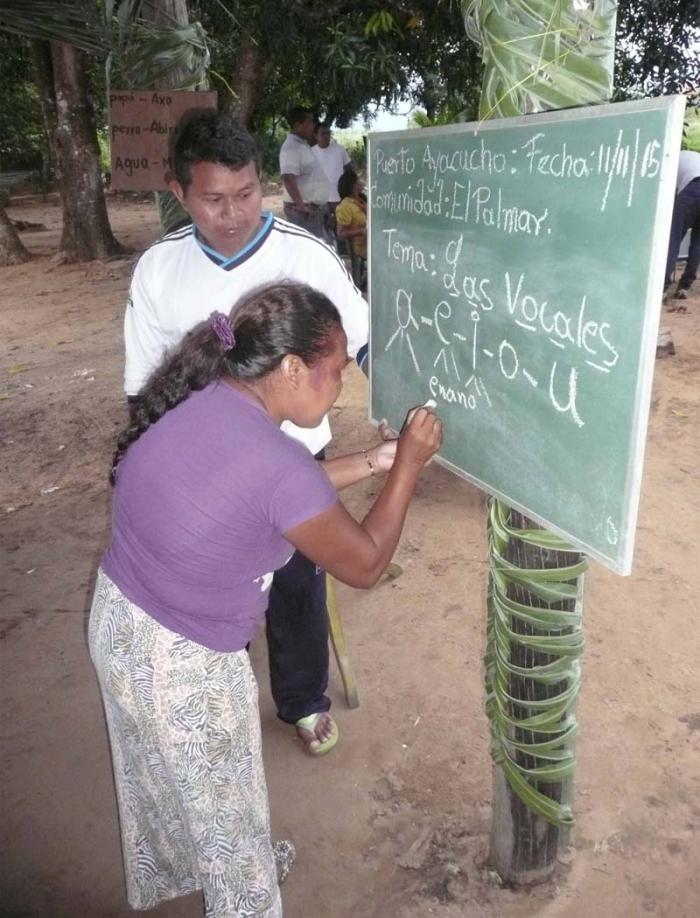 papá - Axo
perro - Abir
Agua - M
Puerto Ayacucho: Fecha: 11/11/15
Comunidad: El Palmar.
Tema: Las Vocales
a - e - i - o - u
enano